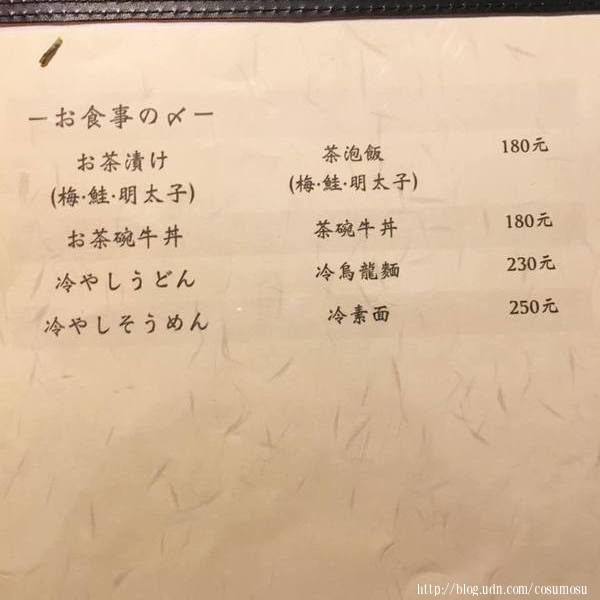 －お食事の〆－
お茶漬け 茶泡飯 180元
(梅·鮭·明太子) (梅·鮭·明太子)
お茶碗牛丼 茶碗牛丼 180元
冷やしうどん 冷烏龍麵 230元
冷やしそうめん 冷素面 250元
http://blog.udn.com/cosumosu